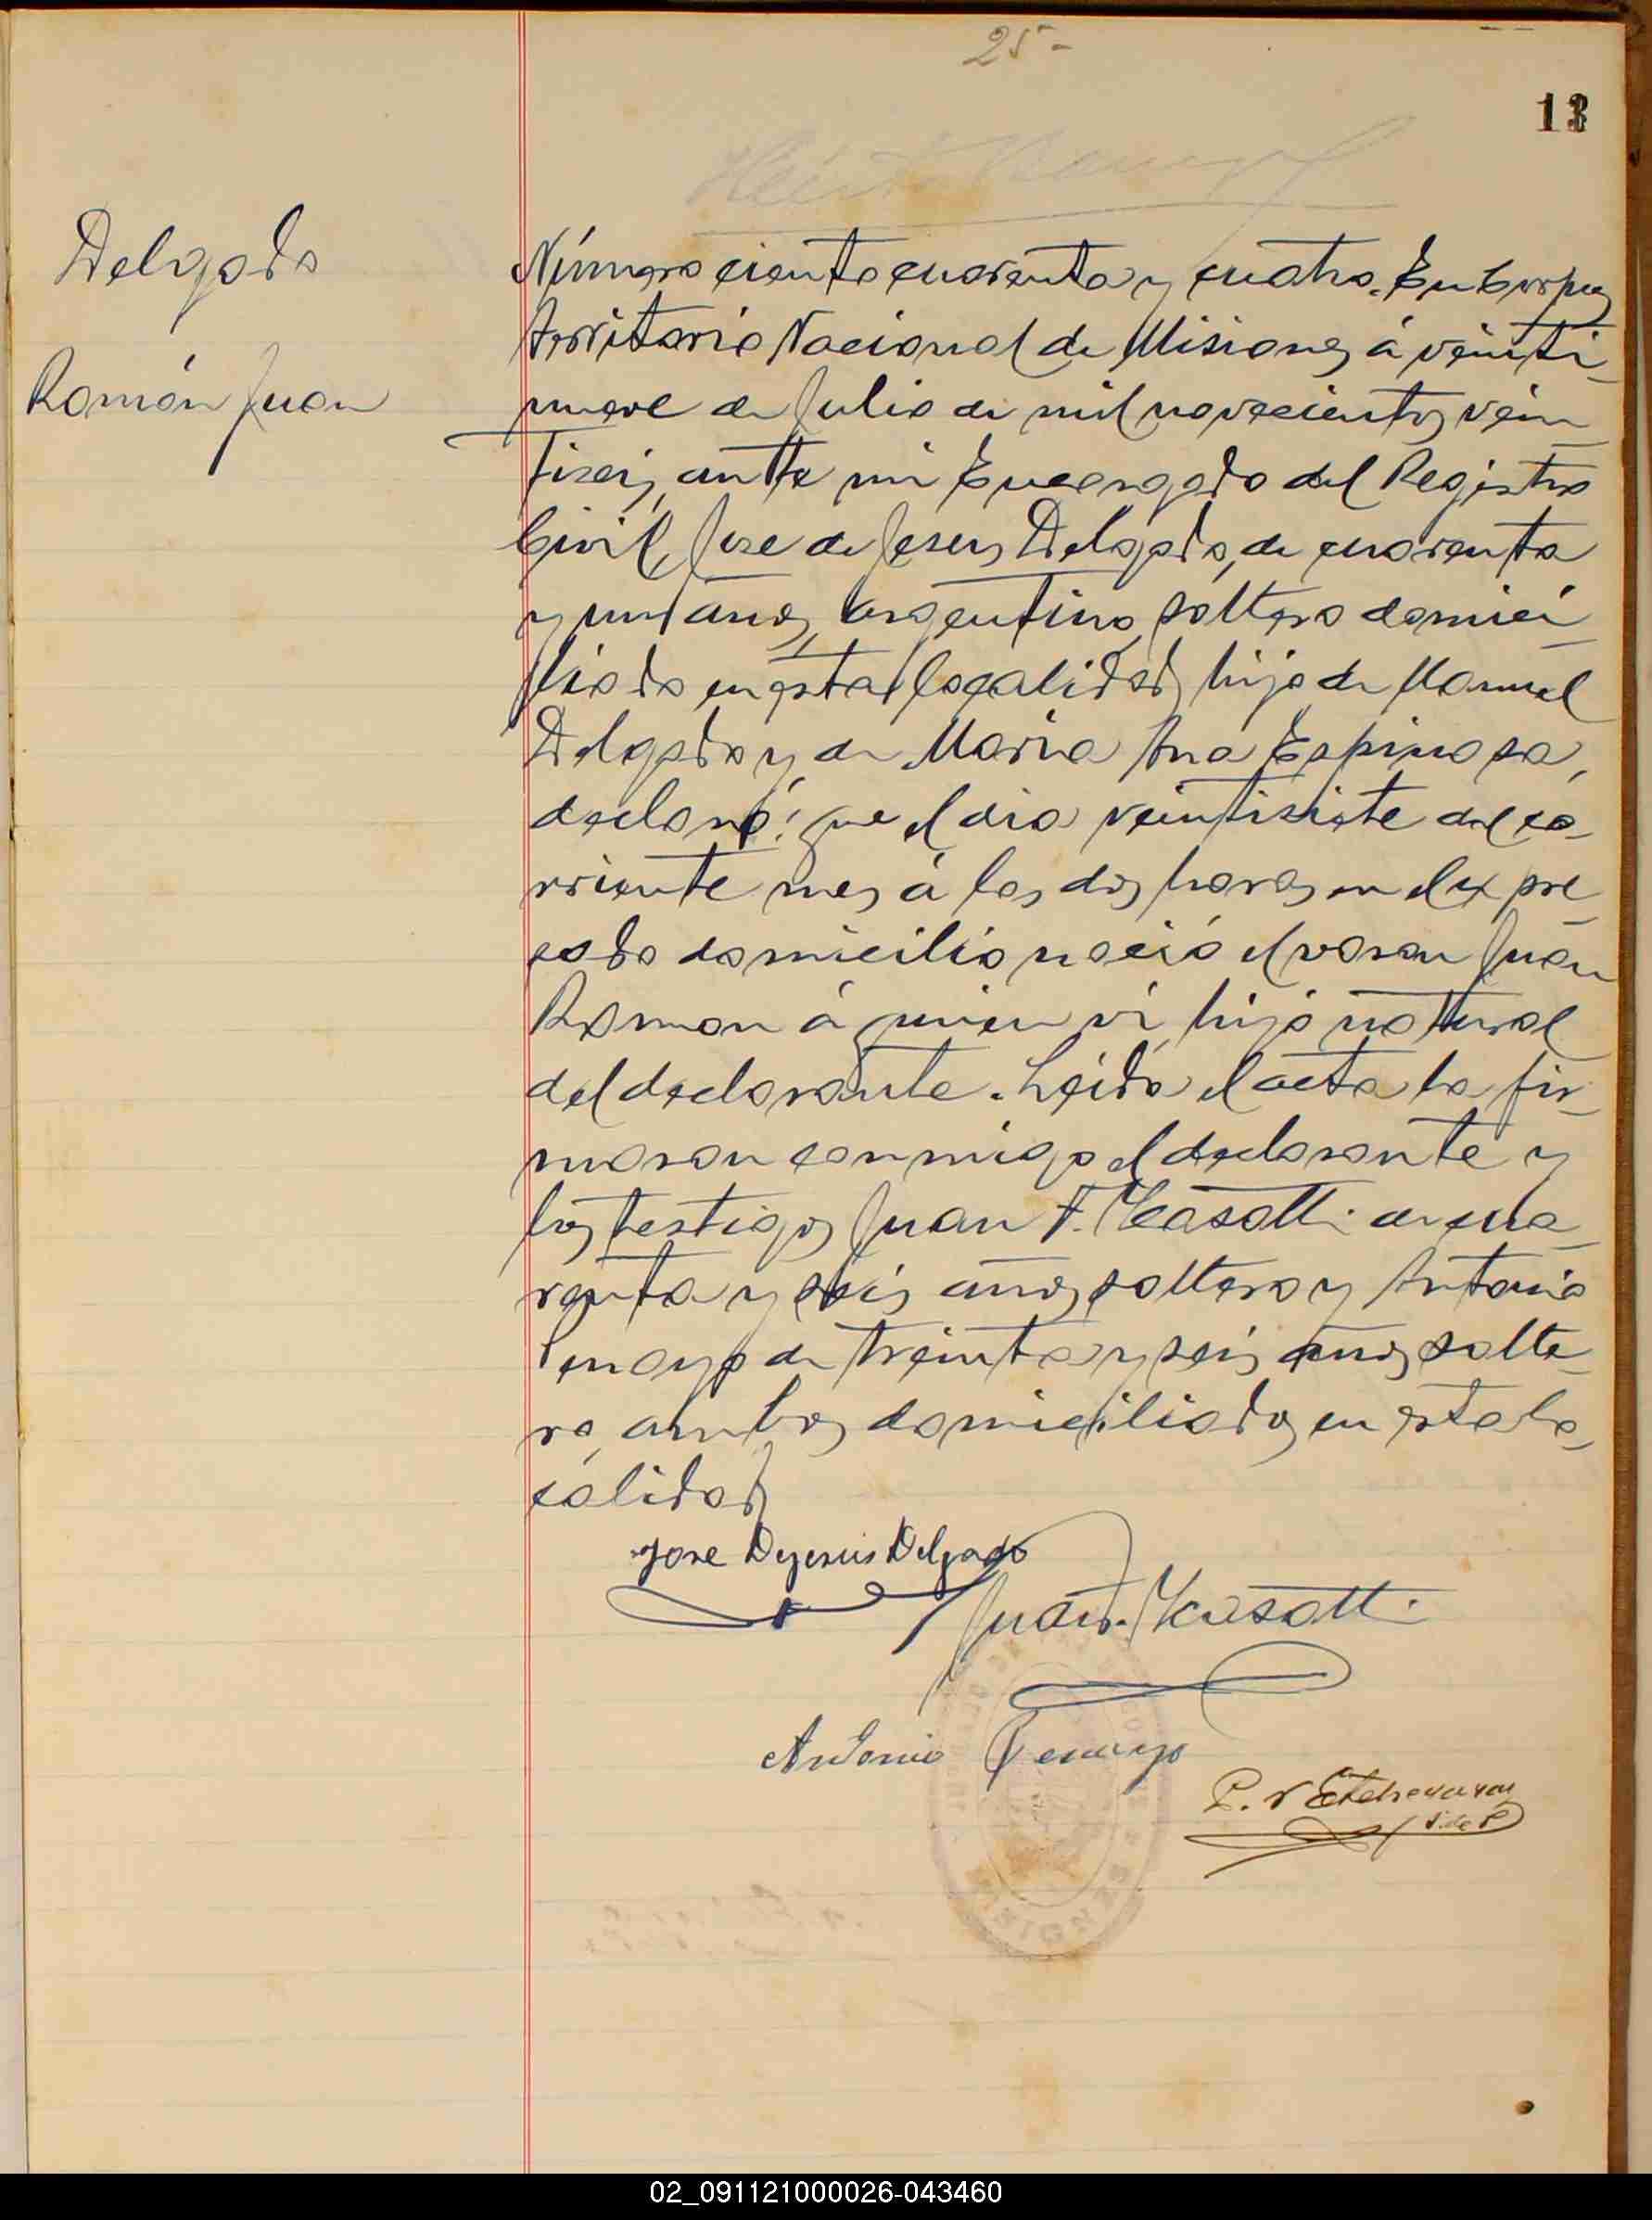 25-
13
Delgado
Román Juan
Número ciento cuarenta y cuatro. En Corpus
territorio Nacional de Misiones á veinti-
nueve de Julio de mil novecientos vein-
tiseis, ante mi Encargado del Registro
Civil, Jose de Jesus Delgado, de cuarenta
y un años, argentino, soltero domici-
liado en esta localidad, hijo de Manuel
Delgado y de Maria Ana Espinosa,
declaró: que el dia veintisiete del co-
rriente mes á las dos horas en el expre-
sado domicilio nació el varon Juan
Ramon á quien vi, hijo natural
del declarante. Leida el acta la fir-
maron conmigo el declarante y
los testigos Juan F. Casatti de cua-
renta y seis años, soltero y Antonio
Penayo de treinta y seis años, solte-
ro, ambos domiciliados en esta lo-
calidad
Jose Dejesus Delgado
Juan F. Casatti
Antonio Penayo
P. N Etcheverray
J. de P
02_091121000026-043460